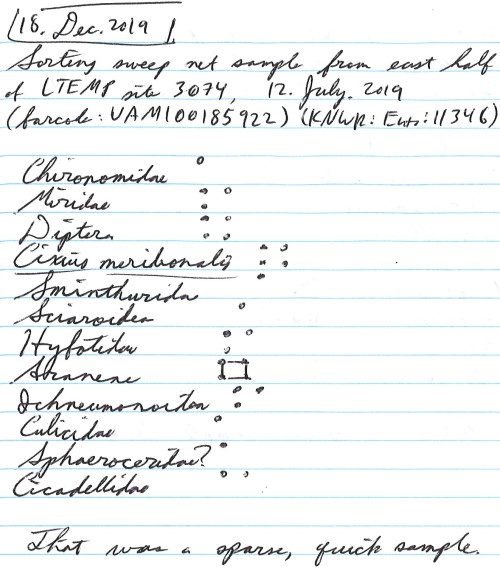 18. Dec. 2019
Sorting sweep net sample from east half
of LTEMP site 3074, 12. July. 2019
(barcode: UAM100185922) (KNWR: Ento: 11346)
Chironomidae
Miridae
Diptera
Cixius meridionalis
Sminthuridae
Sciaroidea
Hybotidae
Araneae
Ichneumonoidea
Culicidae
Sphaeroceridae?
Cicadellidae
That was a sparse, quick sample.